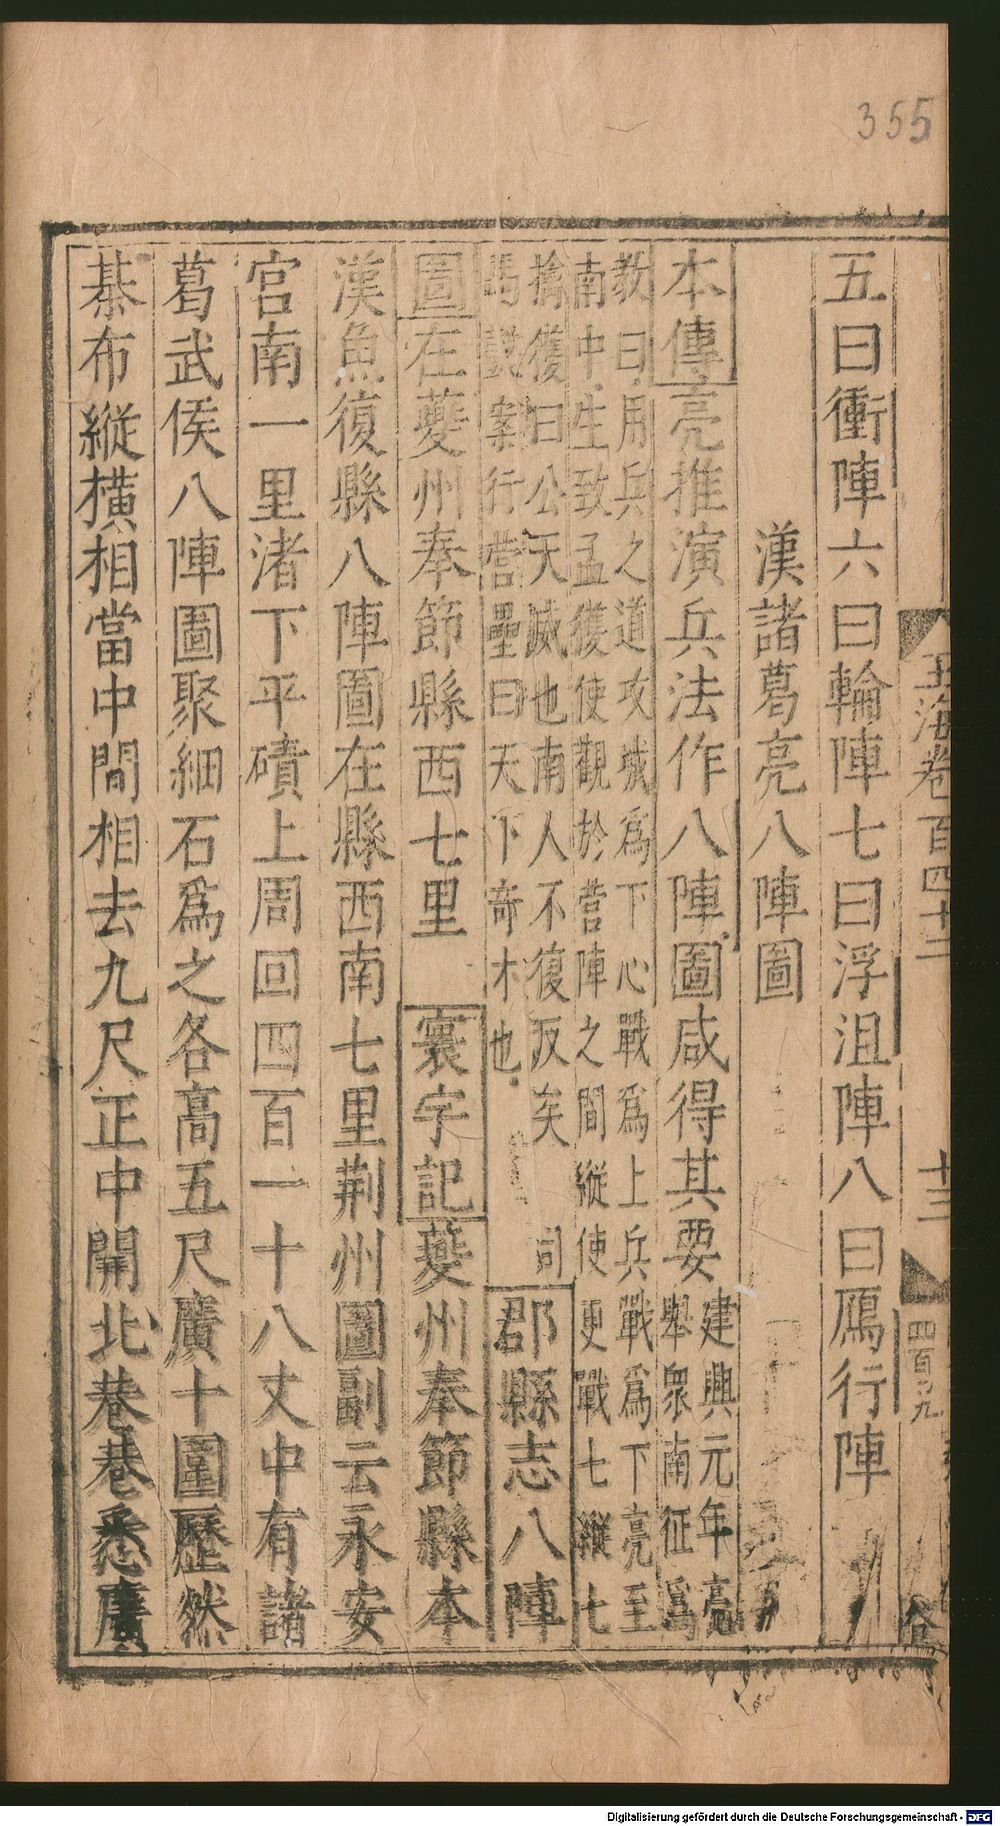 355
玉海卷百四十二
十三
四百九
五曰衝陣六曰輪陣七曰浮沮陣八曰鴈行陣
漢諸葛亮八陣圖
本傳亮推演兵法作八陣圖咸得其要
建興元年亮
舉衆南征爲
教曰用兵之道攻城爲下心戰爲上兵戰爲下亮至
南中生致孟獲使觀於營陣之間縱使更戰七縱七
擒獲曰公天威也南人不復反矣 司
馬懿案行營壘曰天下奇才也
郡縣志八陣
圖在夔州奉節縣西七里 寰宇記夔州奉節縣本
漢魚復縣八陣圖在縣西南七里荆州圖副云永安
宮南一里渚下平磧上周回四百一十八丈中有諸
葛武侯八陣圖聚細石爲之各高五尺廣十圍歷然
棊布縱橫相當中間相去九尺正中開北巷巷悉廣
Digitalisierung gefördert durch die Deutsche Forschungsgemeinschaft - DFG